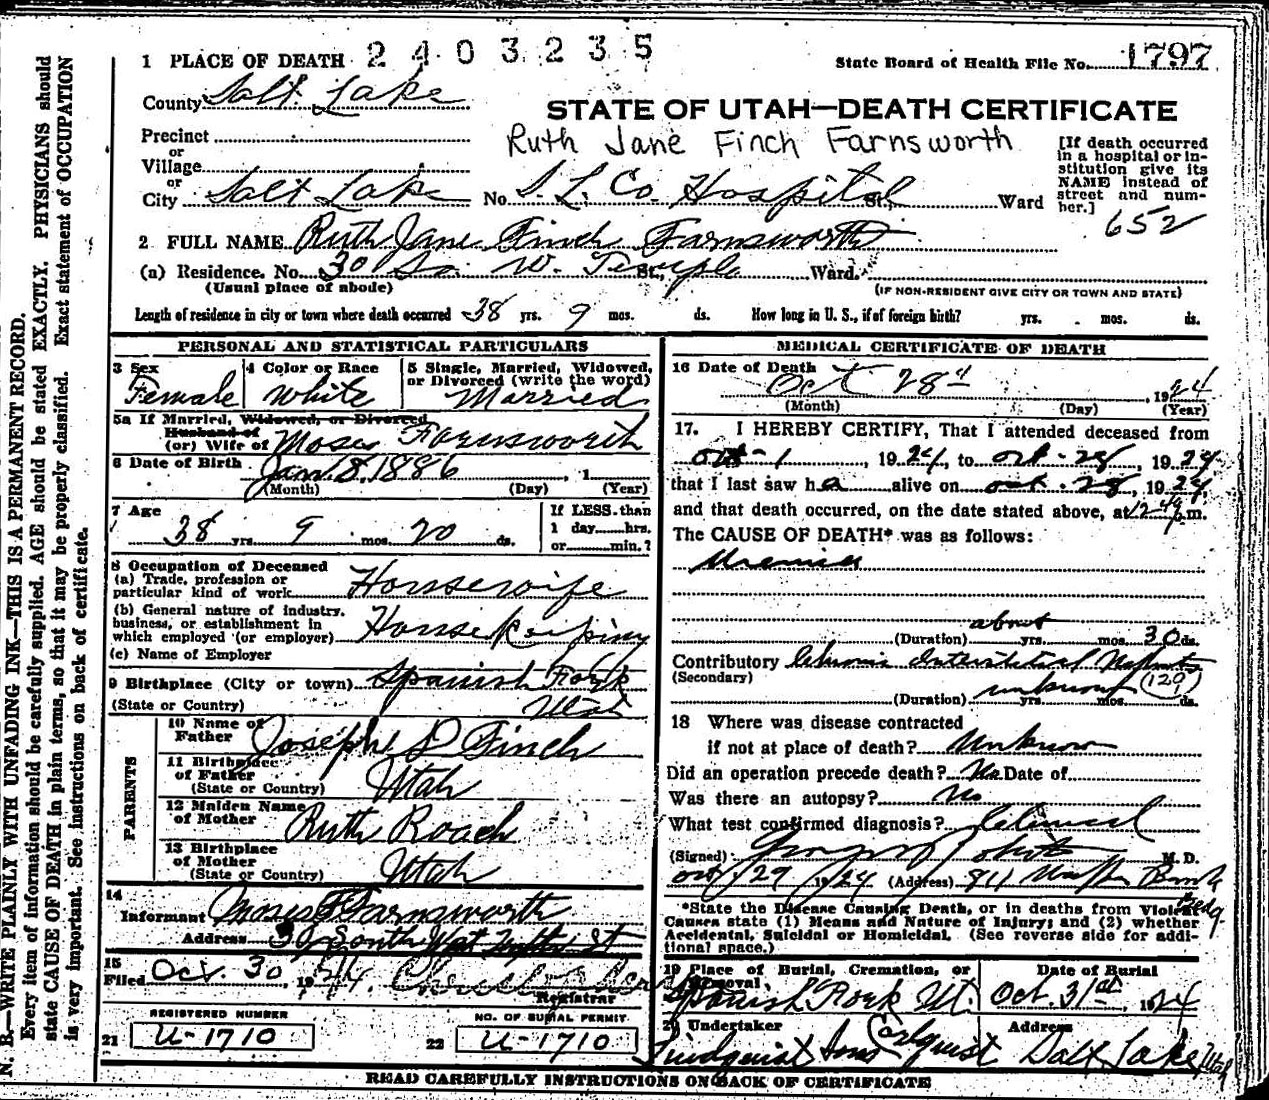 1 PLACE OF DEATH 2403235
State Board of Health File No. 1797
County Salt Lake
STATE OF UTAH—DEATH CERTIFICATE
Precinct
Ruth Jane Finch Farnsworth
or
Village
or
City Salt Lake No. S. L. Co. Hospital St., Ward
[If death occurred
in a hospital or in-
stitution give its
NAME instead of
street and num-
ber.]
652
2 FULL NAME Ruth Jane Finch Farnsworth
(a) Residence. No. 30 So. W. Temple St., Ward.
(Usual place of abode) (IF NON-RESIDENT GIVE CITY OR TOWN AND STATE)
Length of residence in city or town where death occurred 38 yrs. 9 mos. ds. How long in U. S., if of foreign birth? yrs. mos. ds.
PERSONAL AND STATISTICAL PARTICULARS
3 Sex 4 Color or Race 5 Single, Married, Widowed,
or Divorced (write the word)
Female White Married
5a If Married, Widowed, or Divorced
Husband of
(or) Wife of Moses Farnsworth
6 Date of Birth Jan. 8, 1886, 1
(Month) (Day) (Year)
7 Age
38 yrs. 9 mos. 20 ds.
If LESS than
1 day hrs.
or min.?
8 Occupation of Deceased
(a) Trade, profession or
particular kind of work Housewife
(b) General nature of industry,
business, or establishment in
which employed (or employer) Housekeeping
(c) Name of Employer
9 Birthplace (City or town) Spanish Fork
(State or Country) Utah
PARENTS
10 Name of
Father Joseph D Finch
11 Birthplace
of Father
(State or Country) Utah
12 Maiden Name
of Mother Ruth Roach
13 Birthplace
of Mother
(State or Country) Utah
14
Informant Moses F Farnsworth
Address 30 South West Temple St
15
Filed Oct. 30, 1924.
Registrar
REGISTERED NUMBER NO. OF BURIAL PERMIT
21 U-1710 22 U-1710
MEDICAL CERTIFICATE OF DEATH
16 Date of Death
Oct 28th, 1924
(Month) (Day) (Year)
17. I HEREBY CERTIFY, That I attended deceased from
Oct-1, 1924, to Oct-28, 1924
that I last saw h alive on Oct-28, 1924,
and that death occurred, on the date stated above, at m.
The CAUSE OF DEATH* was as follows:
Uremia
about
(Duration) yrs. mos. 30 ds.
Contributory Chronic Interstitial Nephritis
(Secondary) unknown (129)
(Duration) yrs. mos. ds.
18 Where was disease contracted
if not at place of death? Unknown
Did an operation precede death? No Date of
Was there an autopsy? No
What test confirmed diagnosis? Clinical
(Signed) M. D.
Oct/29/1924 (Address) 811
Bldg.
*State the Disease Causing Death, or in deaths from Violent
Causes state (1) Means and Nature of Injury; and (2) whether
Accidental, Suicidal or Homicidal. (See reverse side for addi-
tional space.)
19 Place of Burial, Cremation, or Date of Burial
Removal,
Spanish Fork Ut. Oct. 31st, 1924
20 Undertaker Address
Lindquist Sons Carlquist Salt Lake Utah
READ CAREFULLY INSTRUCTIONS ON BACK OF CERTIFICATE
N. B.—WRITE PLAINLY WITH UNFADING INK—THIS IS A PERMANENT RECORD.
Every item of information should be carefully supplied. AGE should be stated EXACTLY. PHYSICIANS should
state CAUSE OF DEATH in plain terms, so that it may be properly classified. Exact statement of OCCUPATION
is very important. See instructions on back of certificate.